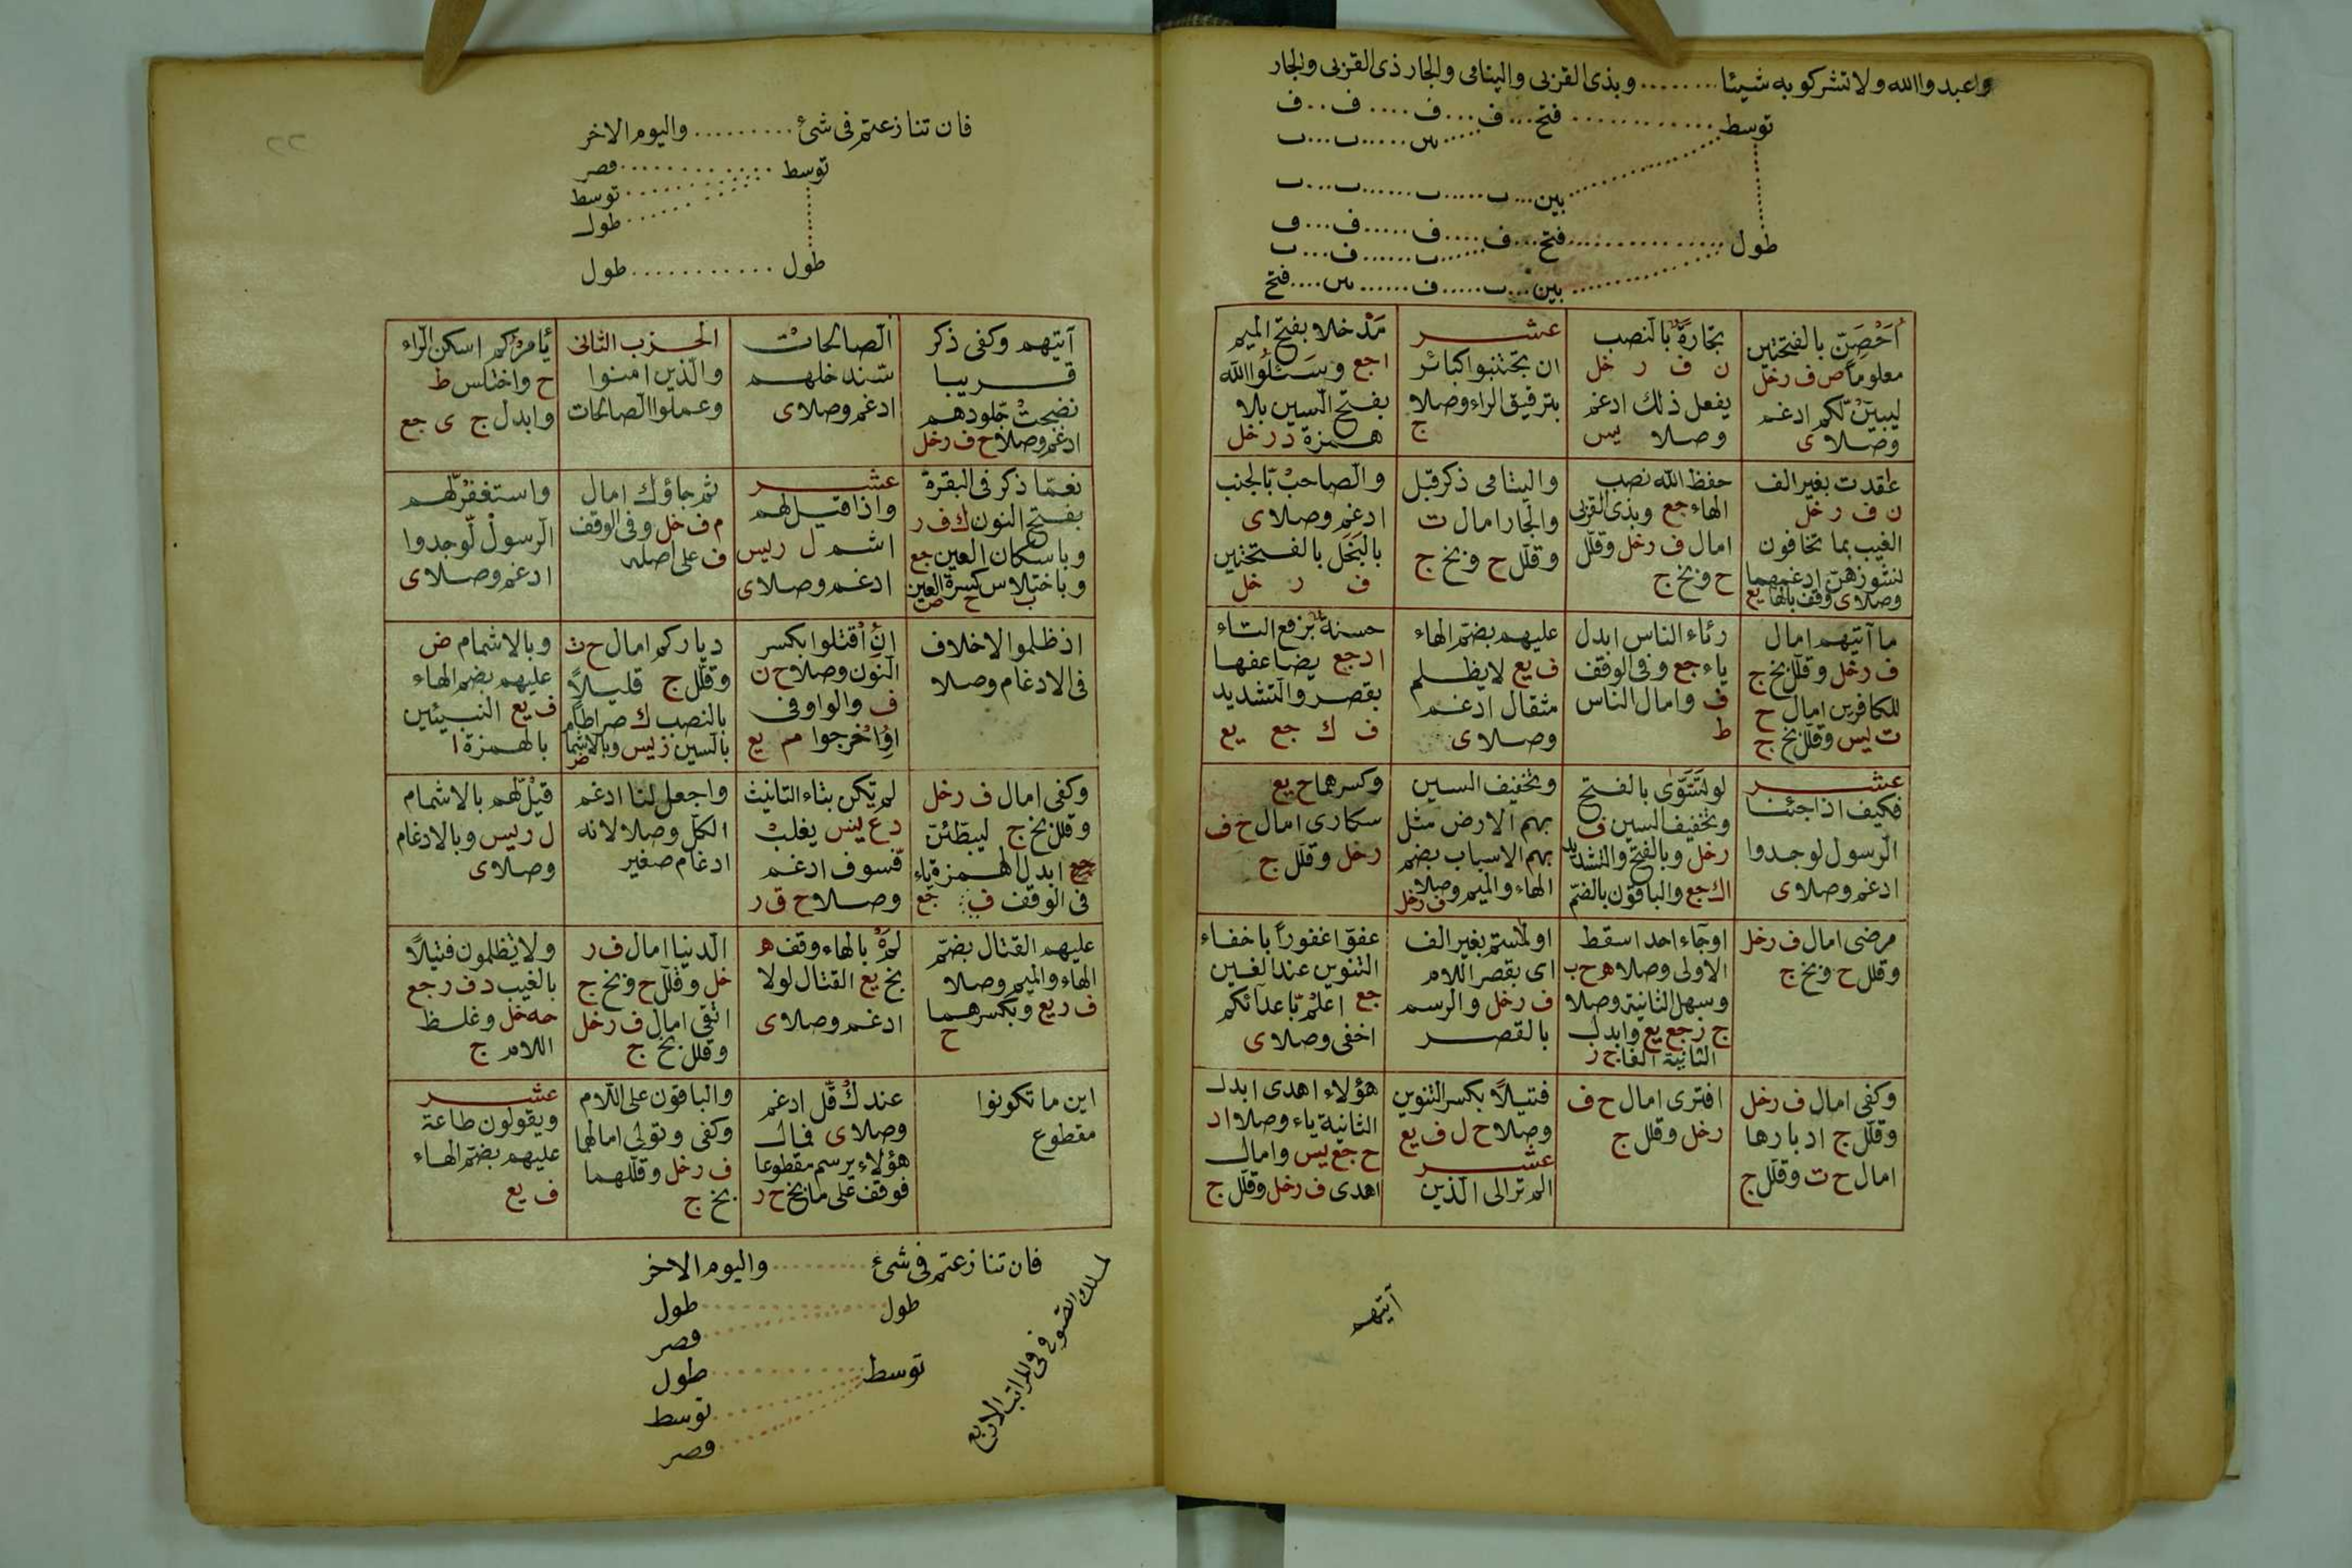 واعبدوا الله ولا تشركو به شيئا ........ وبذى القربى واليتامى والجار ذى القربى والجار
توسط ............ فتح ... ف ... ف .... ف .. ف
س ..... ب ... ب
بين ... ب ..... ب ...... ب ... ب
طول ............ فتح ... ف .... ف ..... ف ... ف
ب ...... ف ... ب
بين ... ب ..... ف ...... س .... فتح
اُحْصَنّ بالفتحتين
معلوما ص ف ر خل
ليبيّن لّكم ادغم
وصلا ى
تجارةً بالنصب
ن ف ر خل
يفعل ذلك ادغم
وصلا يس
عشر
ان تجتنبوا كبائر
بترقيق الراء وصلا
ج
مَدْخلا بفتح الميم
ا جع وسَئَلُوا الله
بفتح السين بلا
همزة د ر خل
عقدت بغير الف
ن ف ر خل
الغيب بما تخافون
نشوزهنّ ادغمهما
وصلا ى وقف بالها يع
حفظ الله نصب
الهاء جع وبذى القربى
امال ف ر خل وقلّل
ح وبخ ج
واليتامى ذكر قبل
والجار امال ت
وقلّل ح وبخ ج
والصّاحبْ بّالجنب
ادغم وصلا ى
بالبَخَل بالفتحتين
ف ر خل
ما آتيهم امال
ف ر خل وقلّل بخ ج
للكافرين امال ح
ت ليس وقلّل بخ ج
رئاء الناس ابدل
ياء جع وفى الوقف
ف وامال الناس
ط
عليهم بضمّ الهاء
ف يع لا يظلم
مثقال ادغم
وصلا ى
حسنةٌ برفع التاء
ا د جع يضاعفها
بقصر والتشديد
ف ك جع يع
عشر
فكيف اذا جئنا
الرسول لوجدوا
ادغم وصلا ى
لو تَسَوّى بالفتح
وتخفيف السين ف
ر خل وبالفتح والتشديد
ا ك جع والباقون بالضمّ
وتخفيف السين
بهم الارض مثل
بهم الاسباب بضم
الهاء والميم وصلا
ف ر خل
وكسرهما ح يع
سكارى امال ح ف
ر خل وقلّل ج
مرضى امال ف ر خل
وقلل ح وبخ ج
او جاء احد اسقط
الاولى وصلا ه ح ب
وسهل الثانية وصلا
ج ز جع يع وابدل
الثانية الفا ج ز
او لمستم بغير الف
اى بقصر اللام
ف ر خل والرسم
بالقصر
عفوّا غفوراً باخفاء
التنوين عند الغين
جع اعلمْ بّاعدآئكم
اخفى وصلا ى
وكفى امال ف ر خل
وقلّل ج ادبارها
امال ح ت وقلّل ج
افترى امال ح ف
ر خل وقلل ج
فتيلاً بكسر التنوين
وصلا ح ل ف يع
عشر
الم تر الى الّذين
هؤلاء اهدى ابدل
الثانية ياء وصلا ا د
ح جع يس وامال
اهدى ف ر خل وقلّل ج
آيتهم
٢٢
فان تنازعتم فى شئ ......... واليوم الاخر
توسط ............ قصر
توسط
طول
طول ............ طول
آيتهم وكفى ذكر
قريبا
نضجتْ جّلودهم
ادغم وصلا ح ف ر خل
الصالحاتْ
سّندخلهم
ادغم وصلا ى
الحزب الثانى
والّذين امنوا
وعملوا الصالحات
يأمرْكم اسكن الراء
ح واختلس ط
وابدل ج ى جع
نعمّا ذكر فى البقرة
بفتح النون ك ف ر
وباسكان العين جع
وباختلاس كسرة العين
ب ح ص
عشر
واذا قيل لهم
اشم ل ر يس
ادغم وصلا ى
ثم جاؤك امال
م ف خل وفى الوقف
ف على اصله
واستغفرْ لّهم
الرسولْ لّوجدوا
ادغم وصلا ى
اذ ظلموا لا خلاف
فى الادغام وصلا
انِ اُقتلوا بكسر
النّون وصلا ح ن
ف والواو فى
اوِ اُخرجوا م م يع
دياركم امال ح ث
وقلّل ج قليلاً
بالنصب ك صراطا م
بالسين ز يس وبالاشما
ض
وبالاشمام ض
عليهم بضم الهاء
ف يع النبيئين
بالهمزة ا
وكفى امال ف ر خل
وقلل بخ ج ليبطّئنّ
جع ابدل الهمزة ياء
فى الوقف ف جع
لم تكن بتاء التانيث
د ع يس يغلبْ
فّسوف ادغم
وصلا ح ق ر
واجعل لنا ادغم
الكلّ وصلا لانه
ادغام صغير
قيلْ لّهم بالاشمام
ل ر يس وبالادغام
وصلا ى
عليهم القتال بضمّ
الهاء والميم وصلا
ف ر يع وبكسرهما
ح
لمهْ بالهاء وقف ه
بخ يع القتال لولا
ادغم وصلا ى
الدنيا امال ف ر
خل وقلّل ح وبخ ج
اتقى امال ف ر خل
وقلل بخ ج
ولا يظلمون فتيلاً
بالغيب د ف ر جع
حه خل وغلظ
اللام ج
اين ما تكونوا
مقطوع
عندكْ قّل ادغم
وصلا ى فمال
هؤلاء برسم مقطوعا
فوقف على ما بخ ح ر
والباقون على اللام
وكفى وتولى امالهما
ف ر خل وقلّلهما
بخ ج
عشر
ويقولون طاعة
عليهم بضمّ الهاء
ف يع
فان تنازعتم فى شئ ......... واليوم الاخر
طول ............ طول
قصر
توسط ............ طول
توسط
قصر
لمسلك فى المراتب الاربع